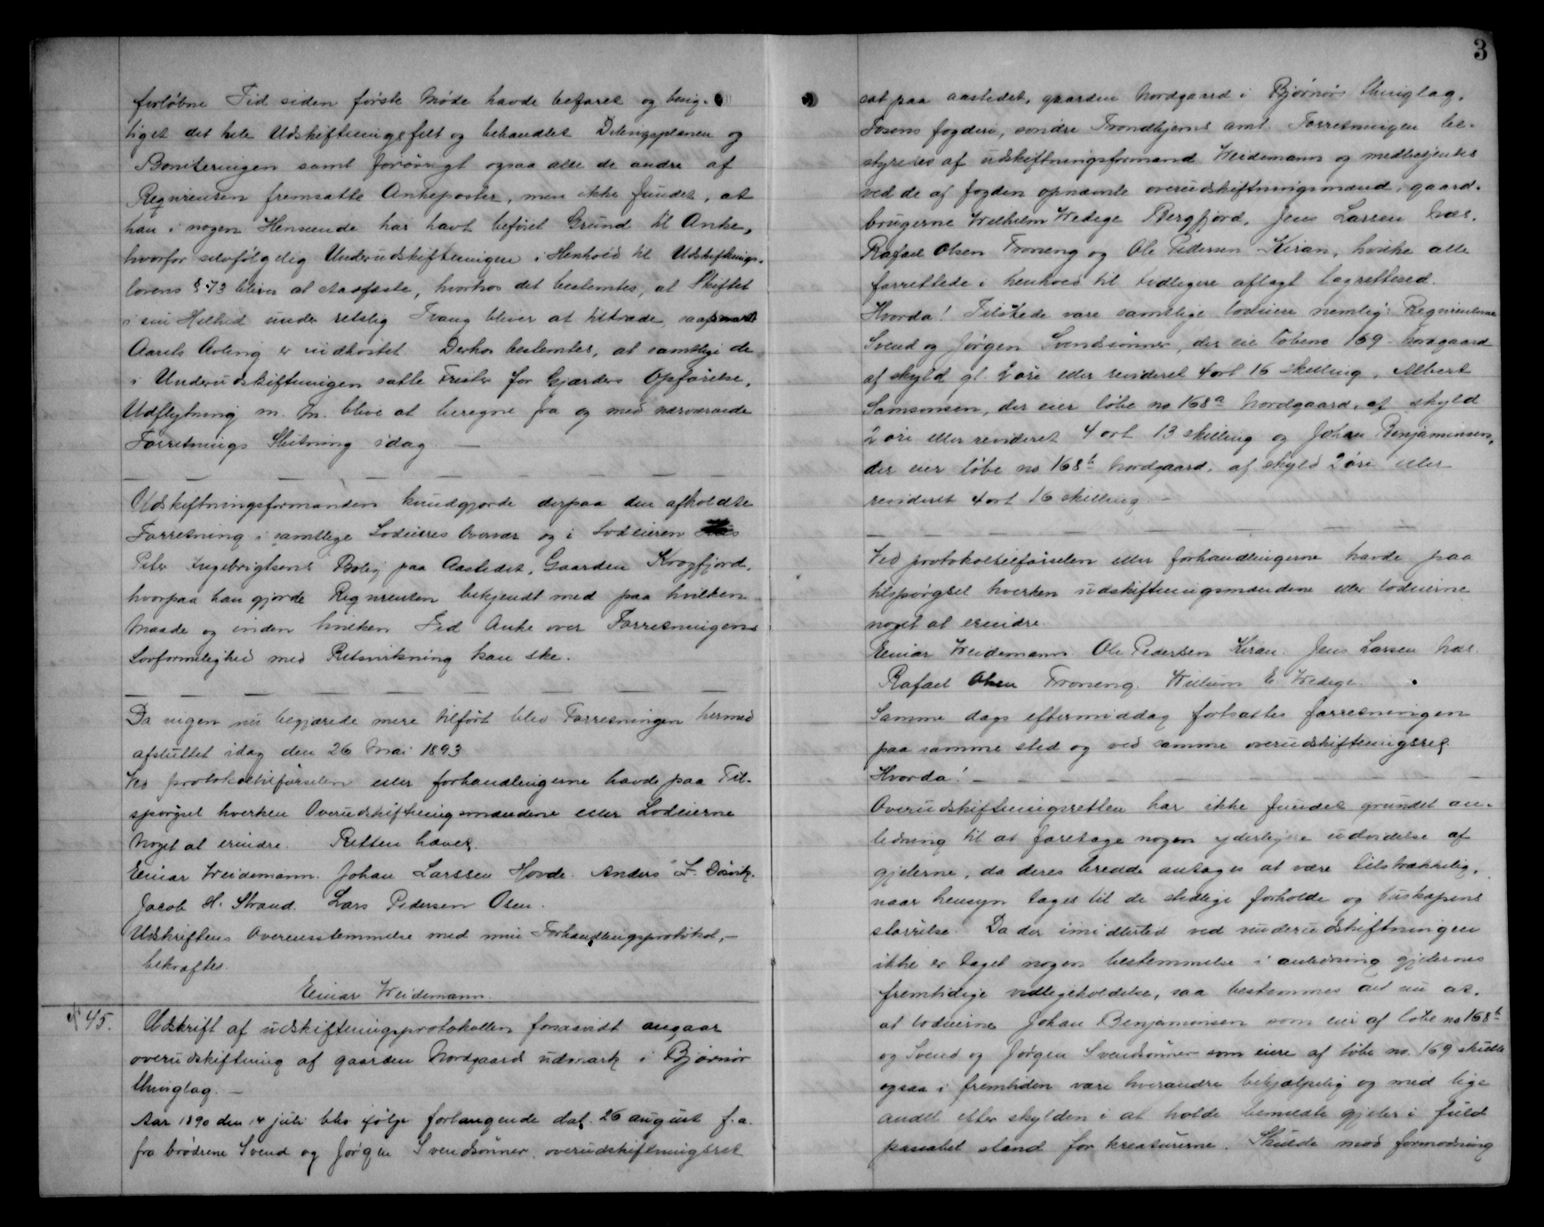 forløbne Tid siden første Møde havde befaret og besig-
tiget det hele Udskiftningsfelt og behandlet Delingsplanen og
Boniteringen samt forøvrigt ogsaa alle de andre af
Reqvirenten fremsatte Ankeposter, men ikke fundet, at
han i nogen Henseende har havt beføiet Grund til Anke,
hvorfor selvfølgelig Underudskiftningen i Henhold til Udskiftnings-
lovens § 73 bliver at stadfæste, hvorhos det bestemtes, at Skiftet
i sin Helhed under retslig Tvang bliver at tiltræde, saasnart
Aarets Avling er indhøstet. Derhos bestemtes, at samtlige de
i Underudskiftningen satte Frister for Gjærders Opførelse,
Udflytning m. m. blive at beregne fra og med nærværende
Forretnings Slutning idag. —
Udskiftningsformanden kundgjorde derpaa den afholdte
Forretning i samtlige Lodeieres Overvær og i Lodeieren
Peter Ingebrigtsens Bolig paa Aastedet, Gaarden Krogfjord,
hvorpaa han gjorde Reqvirenten bekjendt med paa hvilken
Maade og inden hvilken Tid Anke over Forretningens
Lovformelighed med Retsvirkning kan ske.
Da ingen nu begjærede mere tilført blev Forretningen hermed
afsluttet idag den 26 Mai 1893
Ved protokoltilførselen eller forhandlingerne havde paa Til-
spørgsel hverken Overudskiftningsmændene eller Lodeierne
Noget at erindre. Retten hævet.
Einar Weidemann. Johan Larssen Hovde. Anders L.
Jacob H. Strand. Lars Pedersen Osen.
Udskriftens Overensstemmelse med min Forhandlingsprotokol,—
bekræftes.
Einar Weidemann.
№ 45. Udskrift af udskiftningsprotokollen forsaavidt angaar
overudskiftning af gaarden Nordgaards udmark i Bjørnør
thinglag. —
Aar 1890 den 14 juli blev ifølge forlangende dat. 26 august f.a.
fra brødrene Svend og Jørgen Svendsønner overudskiftningsret
3
sat paa aastedet, gaarden Nordgaard i Bjørnørs thinglag,
Fosens fogderi, søndre Trondhjems amt. Forretningen be-
styredes af udskiftningsformand Weidemann og medbetjentes
ved de af fogden opnævnte overudskiftningsmænd, gaard-
brugerne Wilhelm Wedege Bergfjord, Jens Larsen Hæs.
Rafael Olsen Froneng og Ole Pedersen Kiran, hvilke alle
forrettede i henhold til tidligere aflagt lagretteed.
Hvorda! Tilstede vare samtlige lodeiere nemlig: Reqvirenterne
Svend og Jørgen Svendsønner, der eie løbeno 169 Nordgaard
af skyld gl. 2 øre eller revideret 4 ort 16 skilling, Albert
Samsonsen, der eier løbe no 168a Nordgaard, af skyld
2 øre eller revideret 4 ort 13 skilling og Johan Benjaminsen,
der eier løbe no 168b Nordgaard, af skyld 2 øre eller
revideret 4 ort 16 skilling. —
Ved protokoltilførselen eller forhandlingerne havde paa
tilspørgsel hverken udskiftningsmændene eller lodeierne
noget at erindre.
Einar Weidemann Ole Pedersen Kiran. Jens Larsen Hæs.
Rafael Olsen Froneng. Willum E Wedege.
Samme dags eftermiddag fortsattes forretningen
paa samme sted og ved samme overudskiftningsret
Hvorda! —
Overudskiftningsretten har ikke fundet grundet an-
ledning til at foretage nogen yderligere udvidelse af
gjeterne, da deres bredde antages at være tilstrækkelig,
naar hensyn tages til de stedlige forholde og buskapens
størrelse. Da der imidlertid ved underudskiftningen
ikke er taget nogen bestemmelse i anledning gjeternes
fremtidige vedligeholdelse, saa bestemmes det nu at,
at lodeierne Johan Benjaminsen som eier af løbe no 168b
og Svend og Jørgen Svendsønner som eiere af løbe no. 169 skulle
ogsaa i fremtiden være hverandre behjælpelig og med lige
andel efter skylden i at holde bemeldte gjeter i fuld
passabel stand for kreaturerne. Skulde mod formodning